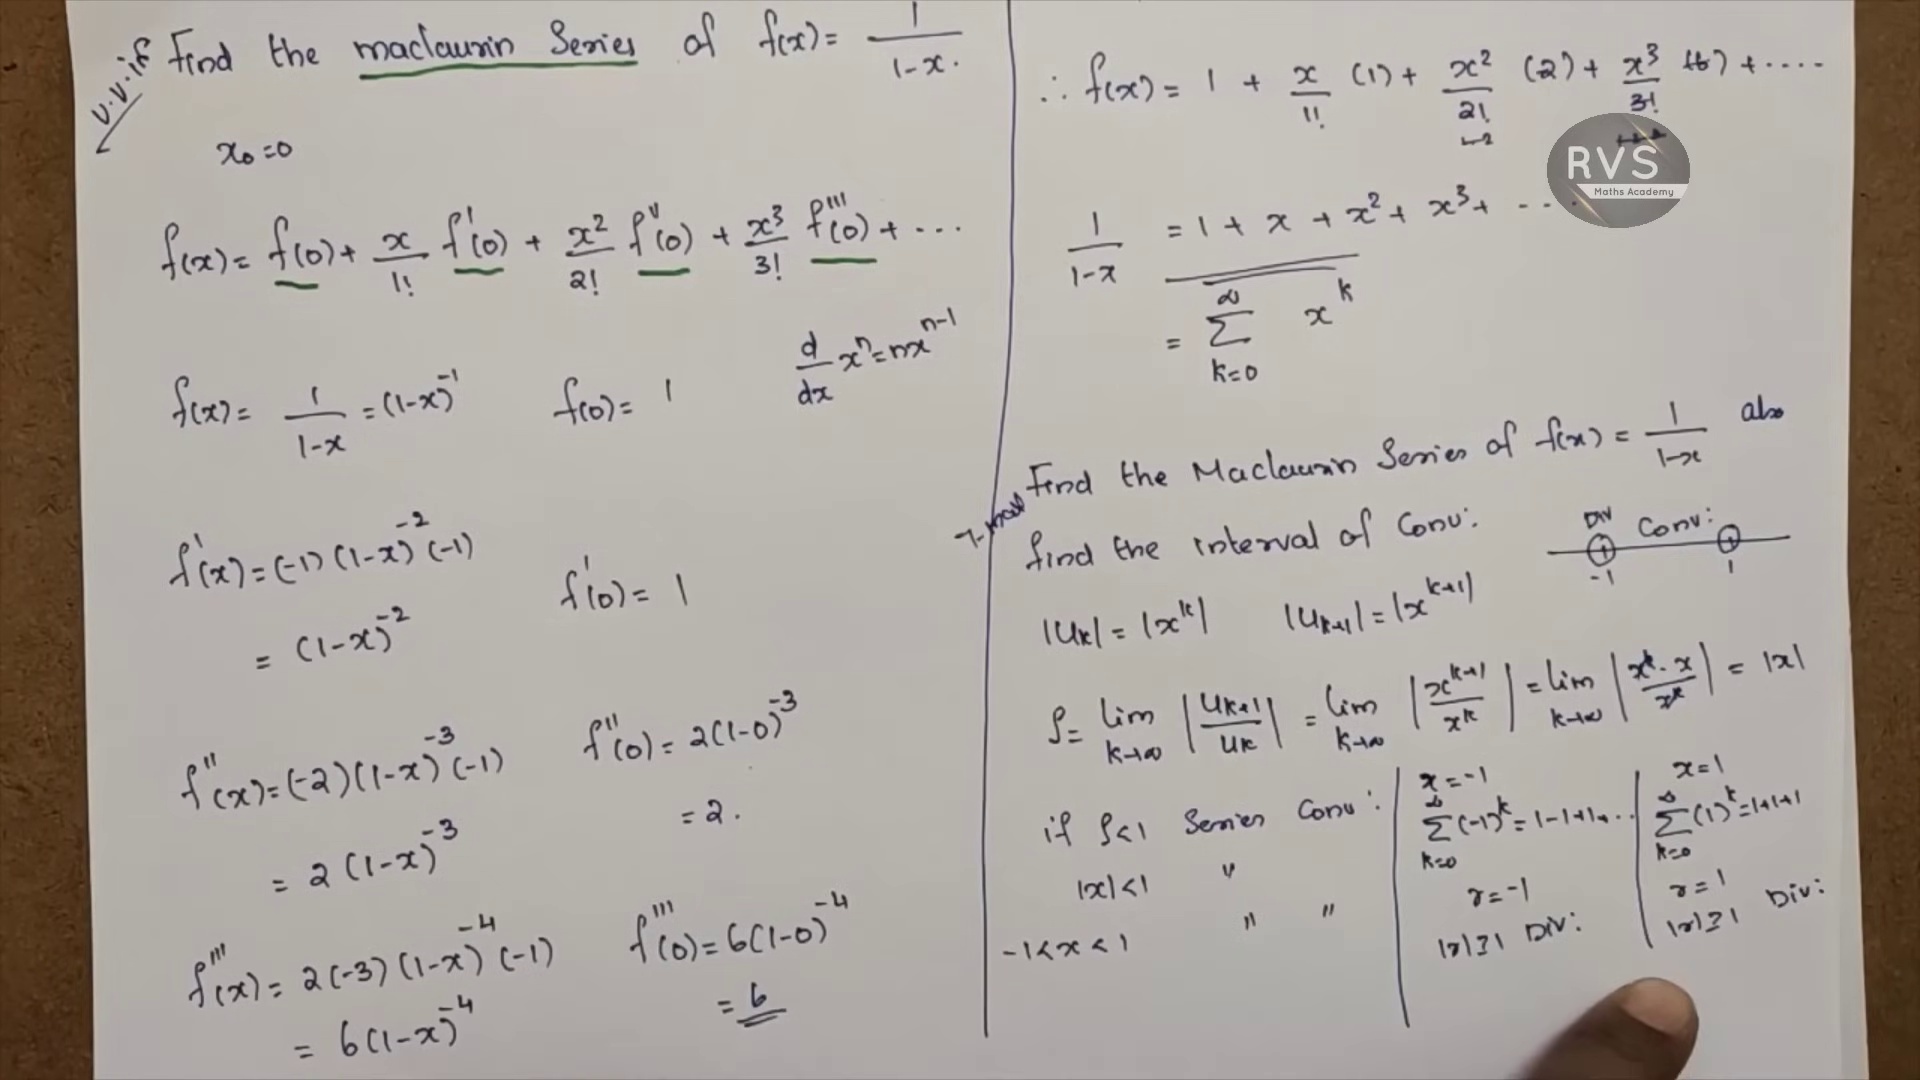 v.v.if Find the maclaurin Series of f(x) = 1/(1-x).
x₀ = 0
f(x) = f(0) + x/1! f'(0) + x²/2! f''(0) + x³/3! f'''(0) + ...
d/dx xⁿ = nxⁿ⁻¹
f(x) = 1/(1-x) = (1-x)⁻¹ f(0) = 1
f'(x) = (-1)(1-x)⁻²(-1) f'(0) = 1
= (1-x)⁻²
f''(x) = (-2)(1-x)⁻³(-1) f''(0) = 2(1-0)⁻³
= 2(1-x)⁻³ = 2.
f'''(x) = 2(-3)(1-x)⁻⁴(-1) f'''(0) = 6(1-0)⁻⁴
= 6(1-x)⁻⁴ = 6
∴ f(x) = 1 + x/1! (1) + x²/2! (2) + x³/3! (6) + ....
RVS
Maths Academy
1/(1-x) = 1 + x + x² + x³ + ...
= ∑_{k=0}^{∞} x^k
Find the Maclaurin Series of f(x) = 1/(1-x) also
find the interval of Conv:
Div Conv:
-1 1
|Uₖ| = |x^k| |Uₖ₊₁| = |x^{k+1}|
ρ = lim_{k→∞} |Uₖ₊₁/Uₖ| = lim_{k→∞} |x^{k+1}/x^k| = lim_{k→∞} |x^k·x/x^k| = |x|
if ρ<1 Series Conv:
|x|<1 "
-1<x<1 " "
x = -1
∑_{k=0}^{∞} (-1)^k = 1-1+1...
r = -1
|r|≥1 Div:
x = 1
∑_{k=0}^{∞} (1)^k = 1+1+1
r = 1
|r|≥1 Div: